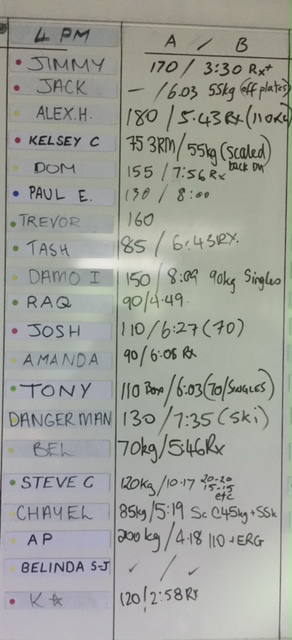 4 PM A / B
JIMMY 170 / 3:30 Rx+
JACK - / 6.03 55kg (off plates)
ALEX.H. 180 / 5.43 Rx (110KG)
KELSEY C 75 3RM / 55kg (scaled)
DOM 155 / 7:56 Rx back on
PAUL E. 130 / 8:00
TREVOR 160
TASH 85 / 6:43 RX.
DAMO I 150 / 8:09 90kg Singles
RAQ 90/4.49.
JOSH 110 / 6:27 (70)
AMANDA 90/6:08 Rx
TONY 110 Box / 6:03 (70/SINGLES)
DANGERMAN 130 / 7:35 (Ski)
BEL 70kg/5:46Rx
STEVE G 120kg/10.17 20-20
15-15
etc
CHAYEL 85kg/5:19 Sc C45kg + SSk
AP 200 kg / 4.18 110 + ERG
BELINDA S-J ✓ / ✓
K☆ 120/2:58 Rx